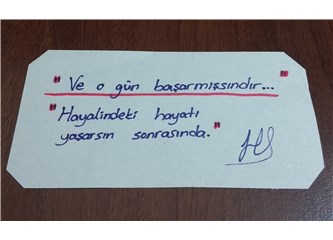 "Ve o gün başarmışsındır..."
"Hayalindeki hayatı
yaşarsın sonrasında."